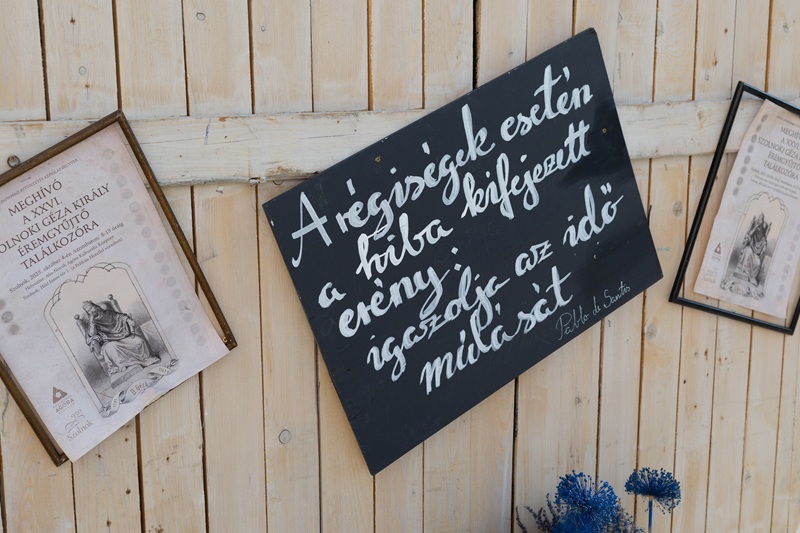 MEGHÍVÓ
A XXVI.
OLNOKI GÉZA KIRÁLY
ÉREMGYŰJTŐ
TALÁLKOZÓRA
Szolnok, 2021. október
AGORA
Szolnok
A régiségek esetén
a hiba kifejezett
erény:
igazolja az idő
múlását
Pablo de Santis
MEGHÍVÓ
A XXVI.
SZOLNOKI GÉZA
ÉREMGYŰJTŐ
TALÁLKOZÓRA